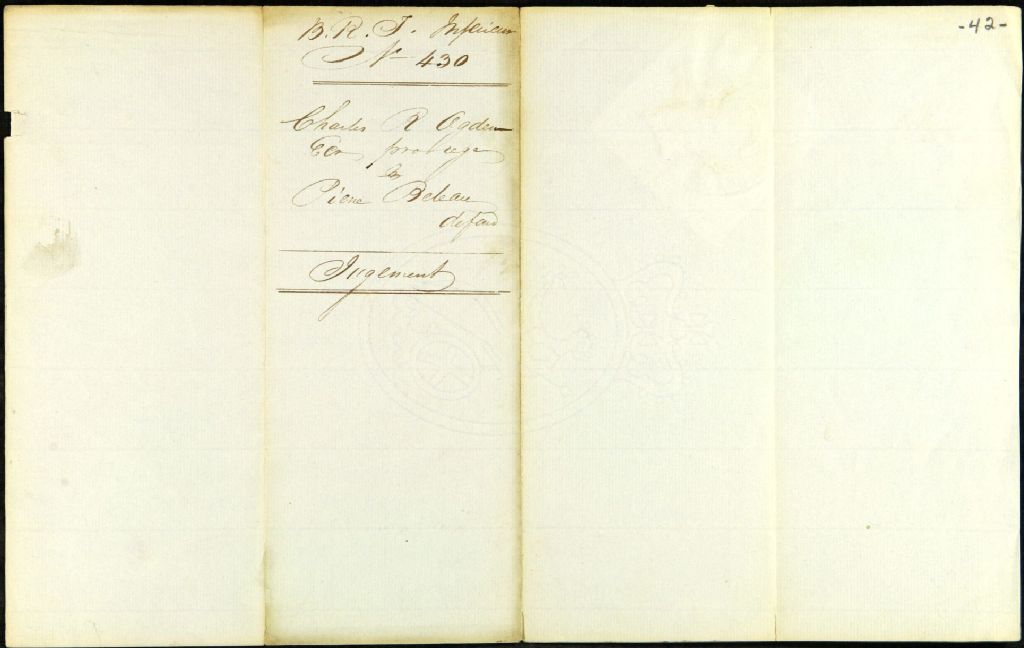 -42-
B. R. T. Inférieur
No 430
Charles R Ogden
Ecr, pro rege
vs
Pierre Beleau
defend
Jugement